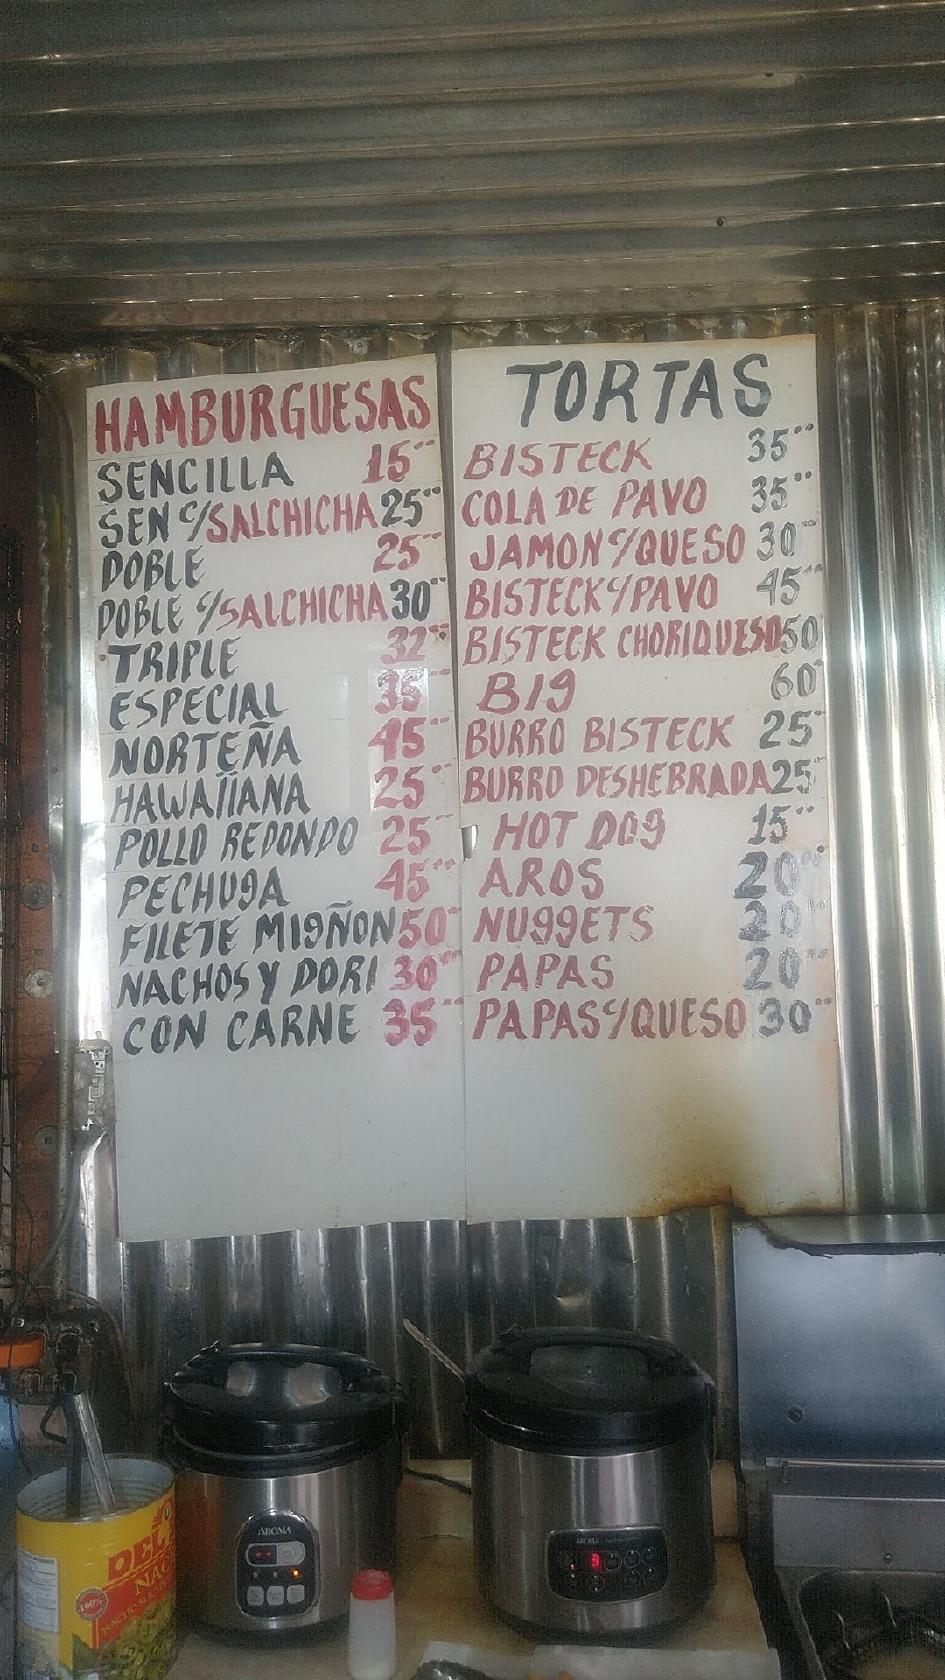 HAMBURGUESAS
SENCILLA 15°°
SEN C/SALCHICHA 25°°
DOBLE 25°°
DOBLE C/SALCHICHA 30°°
TRIPLE 32°°
ESPECIAL 35°°
NORTEÑA 45°°
HAWAIIANA 25°°
POLLO REDONDO 25°°
PECHUGA 45°°
FILETE MIGÑON 50°°
NACHOS Y DORI 30°°
CON CARNE 35°°
TORTAS
BISTECK 35°°
COLA DE PAVO 35°°
JAMON C/QUESO 30°°
BISTECK C/PAVO 45°°
BISTECK CHORIQUESO 50
BIG 60°°
BURRO BISTECK 25°°
BURRO DESHEBRADA 25°°
HOT DOG 15°°
AROS 20°°
NUGGETS 20°°
PAPAS 20°°
PAPAS C/QUESO 30°°
AROMA
AROMA
100%